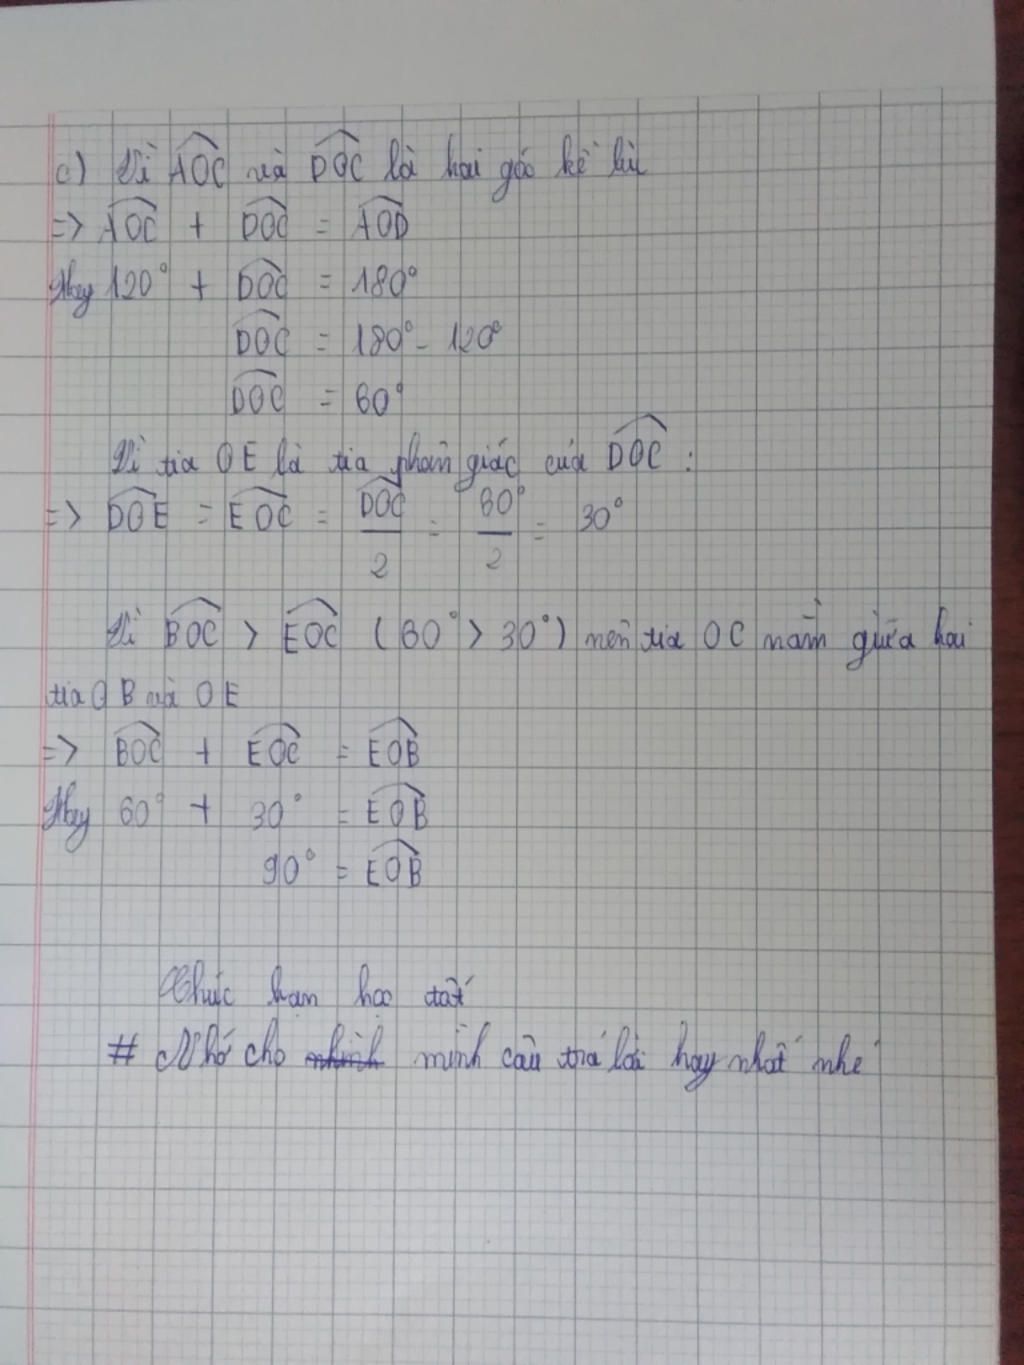 c) Vì AOC và DOC là hai góc kề bù
=> AOC + DOC = AOD
Hay 120° + DOC = 180°
DOC = 180° - 120°
DOC = 60°
Vì tia OE là tia phân giác của DOC :
=> DOE = EOC = DOC/2 = 60°/2 = 30°
Vì BOC > EOC (60° > 30°) nên tia OC nằm giữa hai
tia OB và OE
=> BOC + EOC = EOB
Hay 60° + 30° = EOB
90° = EOB
Chúc bạn học tốt
# Nhớ cho mình câu trả lời hay nhất nhé